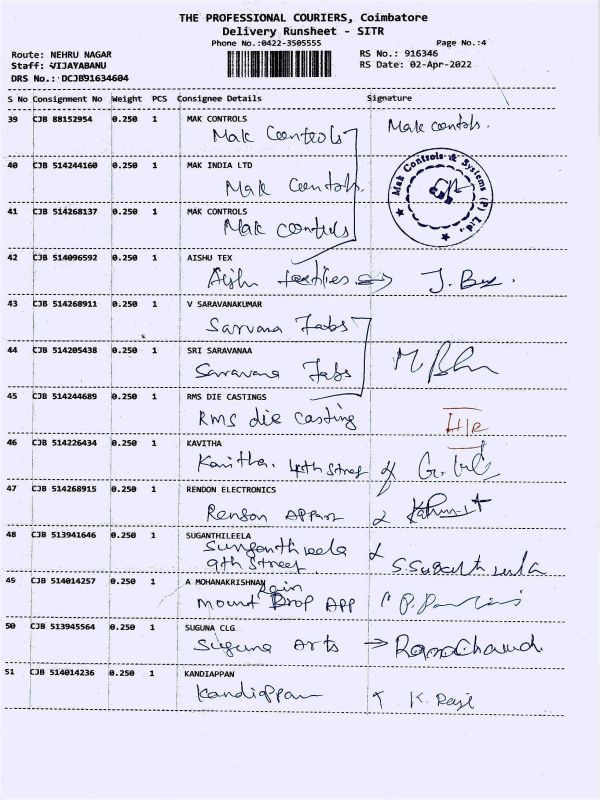 THE PROFESSIONAL COURIERS, Coimbatore
Delivery Runsheet - SITR
Phone No.:0422-3505555
Page No.:4
Route: NEHRU NAGAR
RS No.: 916346
Staff: VIJAYABANU
RS Date: 02-Apr-2022
DRS No.: DCJB91634604
S No Consignment No Weight PCS Consignee Details Signature
39 CJB 88152954 0.250 1 MAK CONTROLS
Mak Controls Mak Controls.
40 CJB 514244160 0.250 1 MAK INDIA LTD
Mak Controls.
Mak Controls & Systems (P) Ltd.,
41 CJB 514268137 0.250 1 MAK CONTROLS
Mak controls
42 CJB 514096592 0.250 1 AISHU TEX
Aishu textiles
43 CJB 514268911 0.250 1 V SARAVANAKUMAR
Sarvana Fabs
44 CJB 514205438 0.250 1 SRI SARAVANAA
Saravana Fabs
45 CJB 514244689 0.250 1 RMS DIE CASTINGS
Rms die casting
46 CJB 514226434 0.250 1 KAVITHA
Kavitha. 4th street
47 CJB 514268915 0.250 1 RENDON ELECTRONICS
48 CJB 513941646 0.250 1 SUGANTHILEELA
9th street
49 CJB 514014257 0.250 1 A MOHANAKRISHNAN
Rain
Mount Drop APP
50 CJB 513945564 0.250 1 SUGUNA CLG
Suguna Arts → 
51 CJB 514014236 0.250 1 KANDIAPPAN
Kandiappan K. Raje